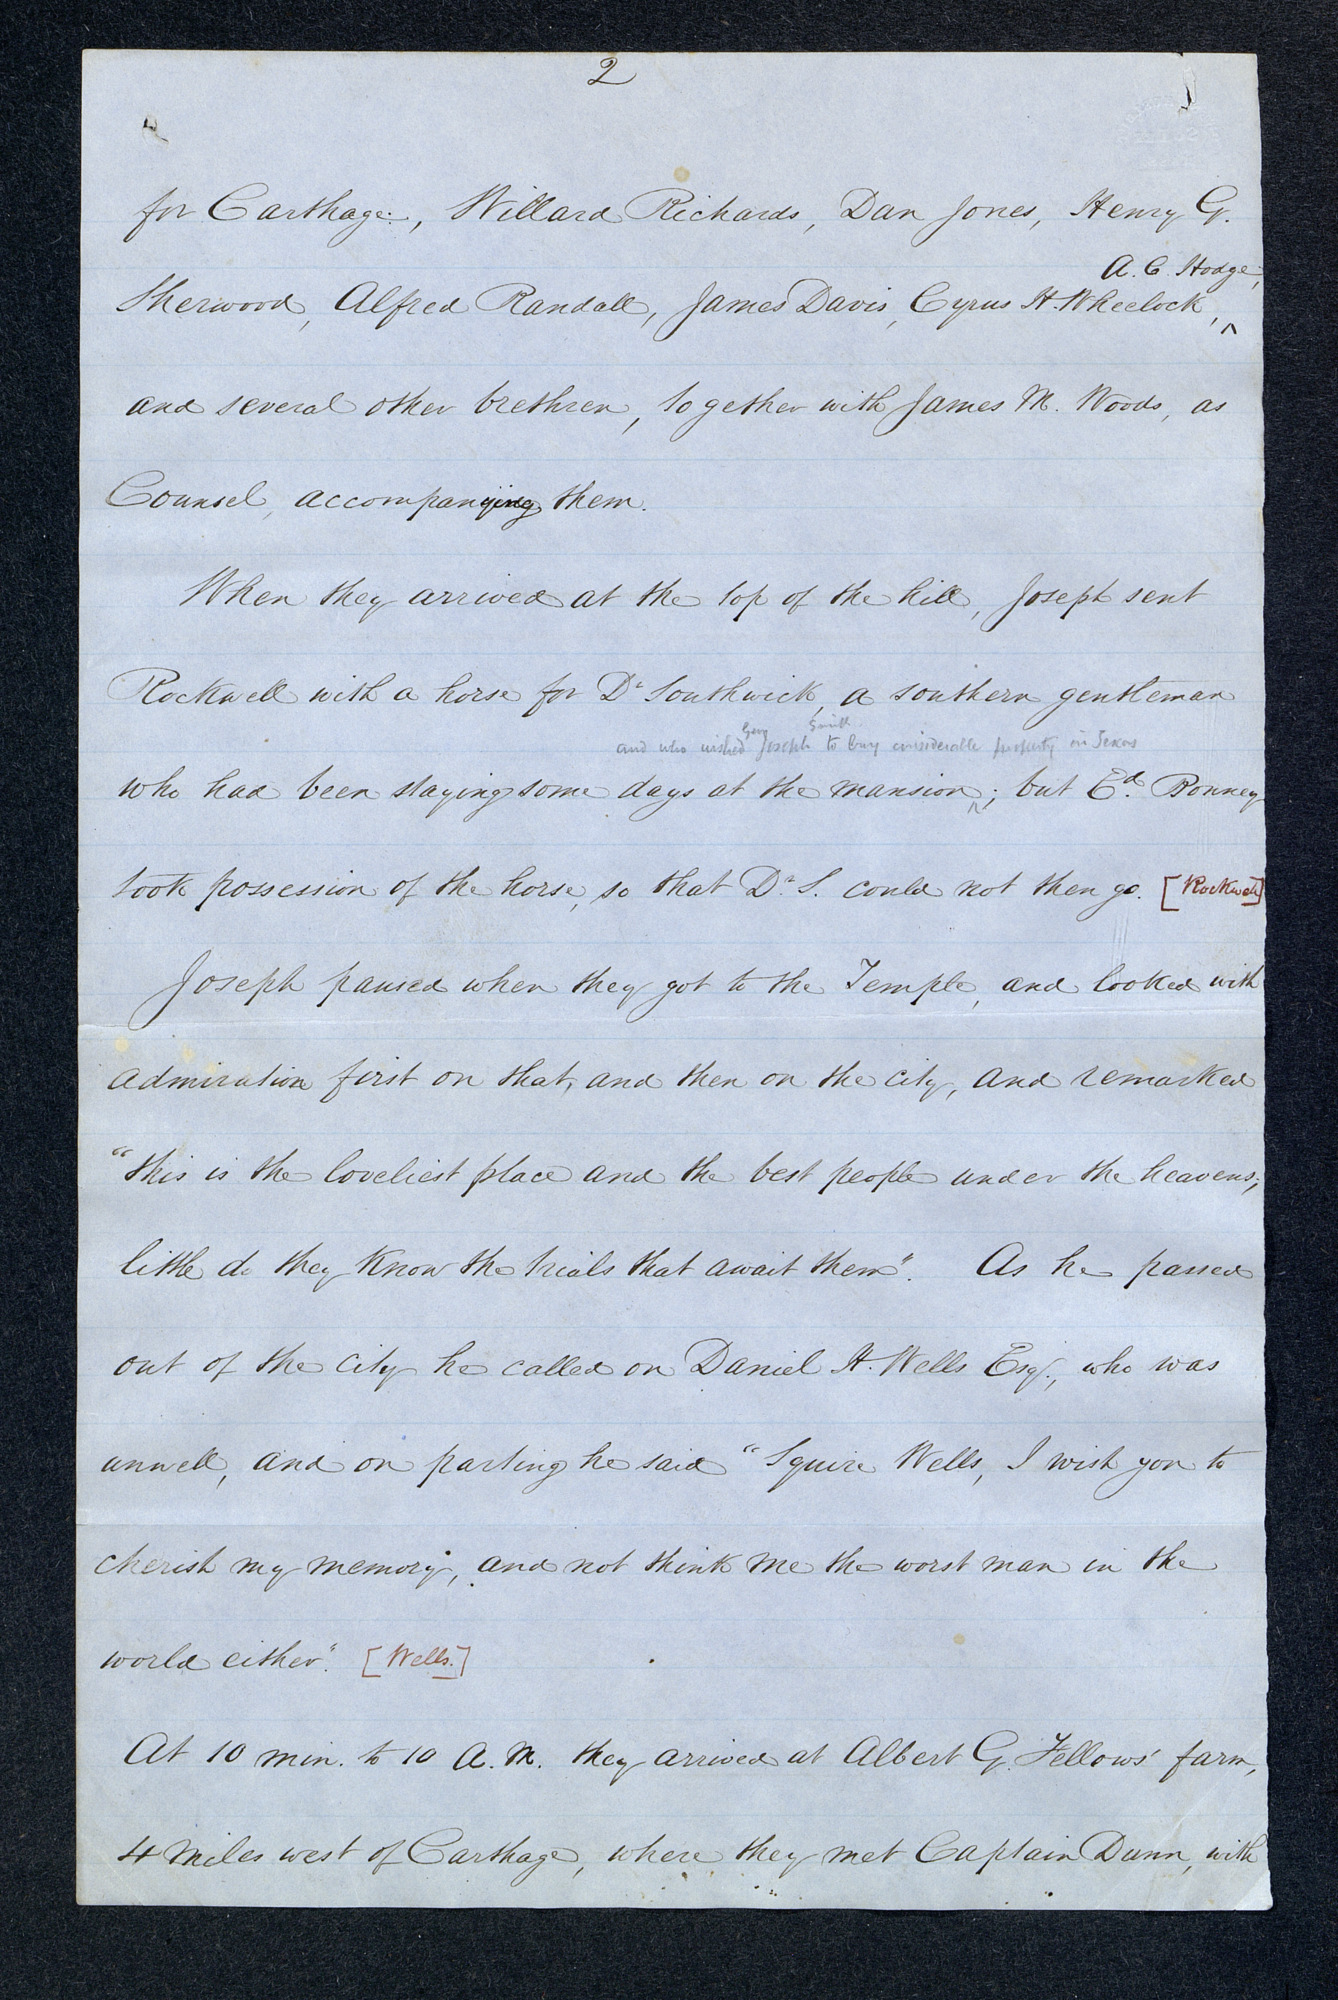 2
for Carthage:, Willard Richards, Dan Jones, Henry G.
A. C. Hodge,
Sherwood, Alfred Randall, James Davis, Cyrus H. Wheelock, ^
and several other brethren, together with James M. Woods, as
Counsel, accompanying them.
When they arrived at the top of the hill, Joseph sent
Rockwell with a horse for Dr Southwick, a southern gentleman
Genl Smith
and who wished Joseph to buy considerable property in Texas
who had been staying some days at the mansion ^; but Ed. Bonney
took possession of the horse, so that Dr S. could not then go. [Rockwell]
Joseph paused when they got to the Temple, and looked with
admiration first on that, and then on the city, and remarked
"this is the loveliest place and the best people under the heavens;
little do they know the trials that await them". As he passed
out of the city he called on Daniel H. Wells Esq., who was
unwell, and on parting he said "Squire Wells, I wish you to
cherish my memory, and not think me the worst man in the
world either". [Wells.]
At 10 min. to 10 A. M. they arrived at Albert G. Fellows' farm,
4 miles west of Carthage, where they met Captain Dunn, with